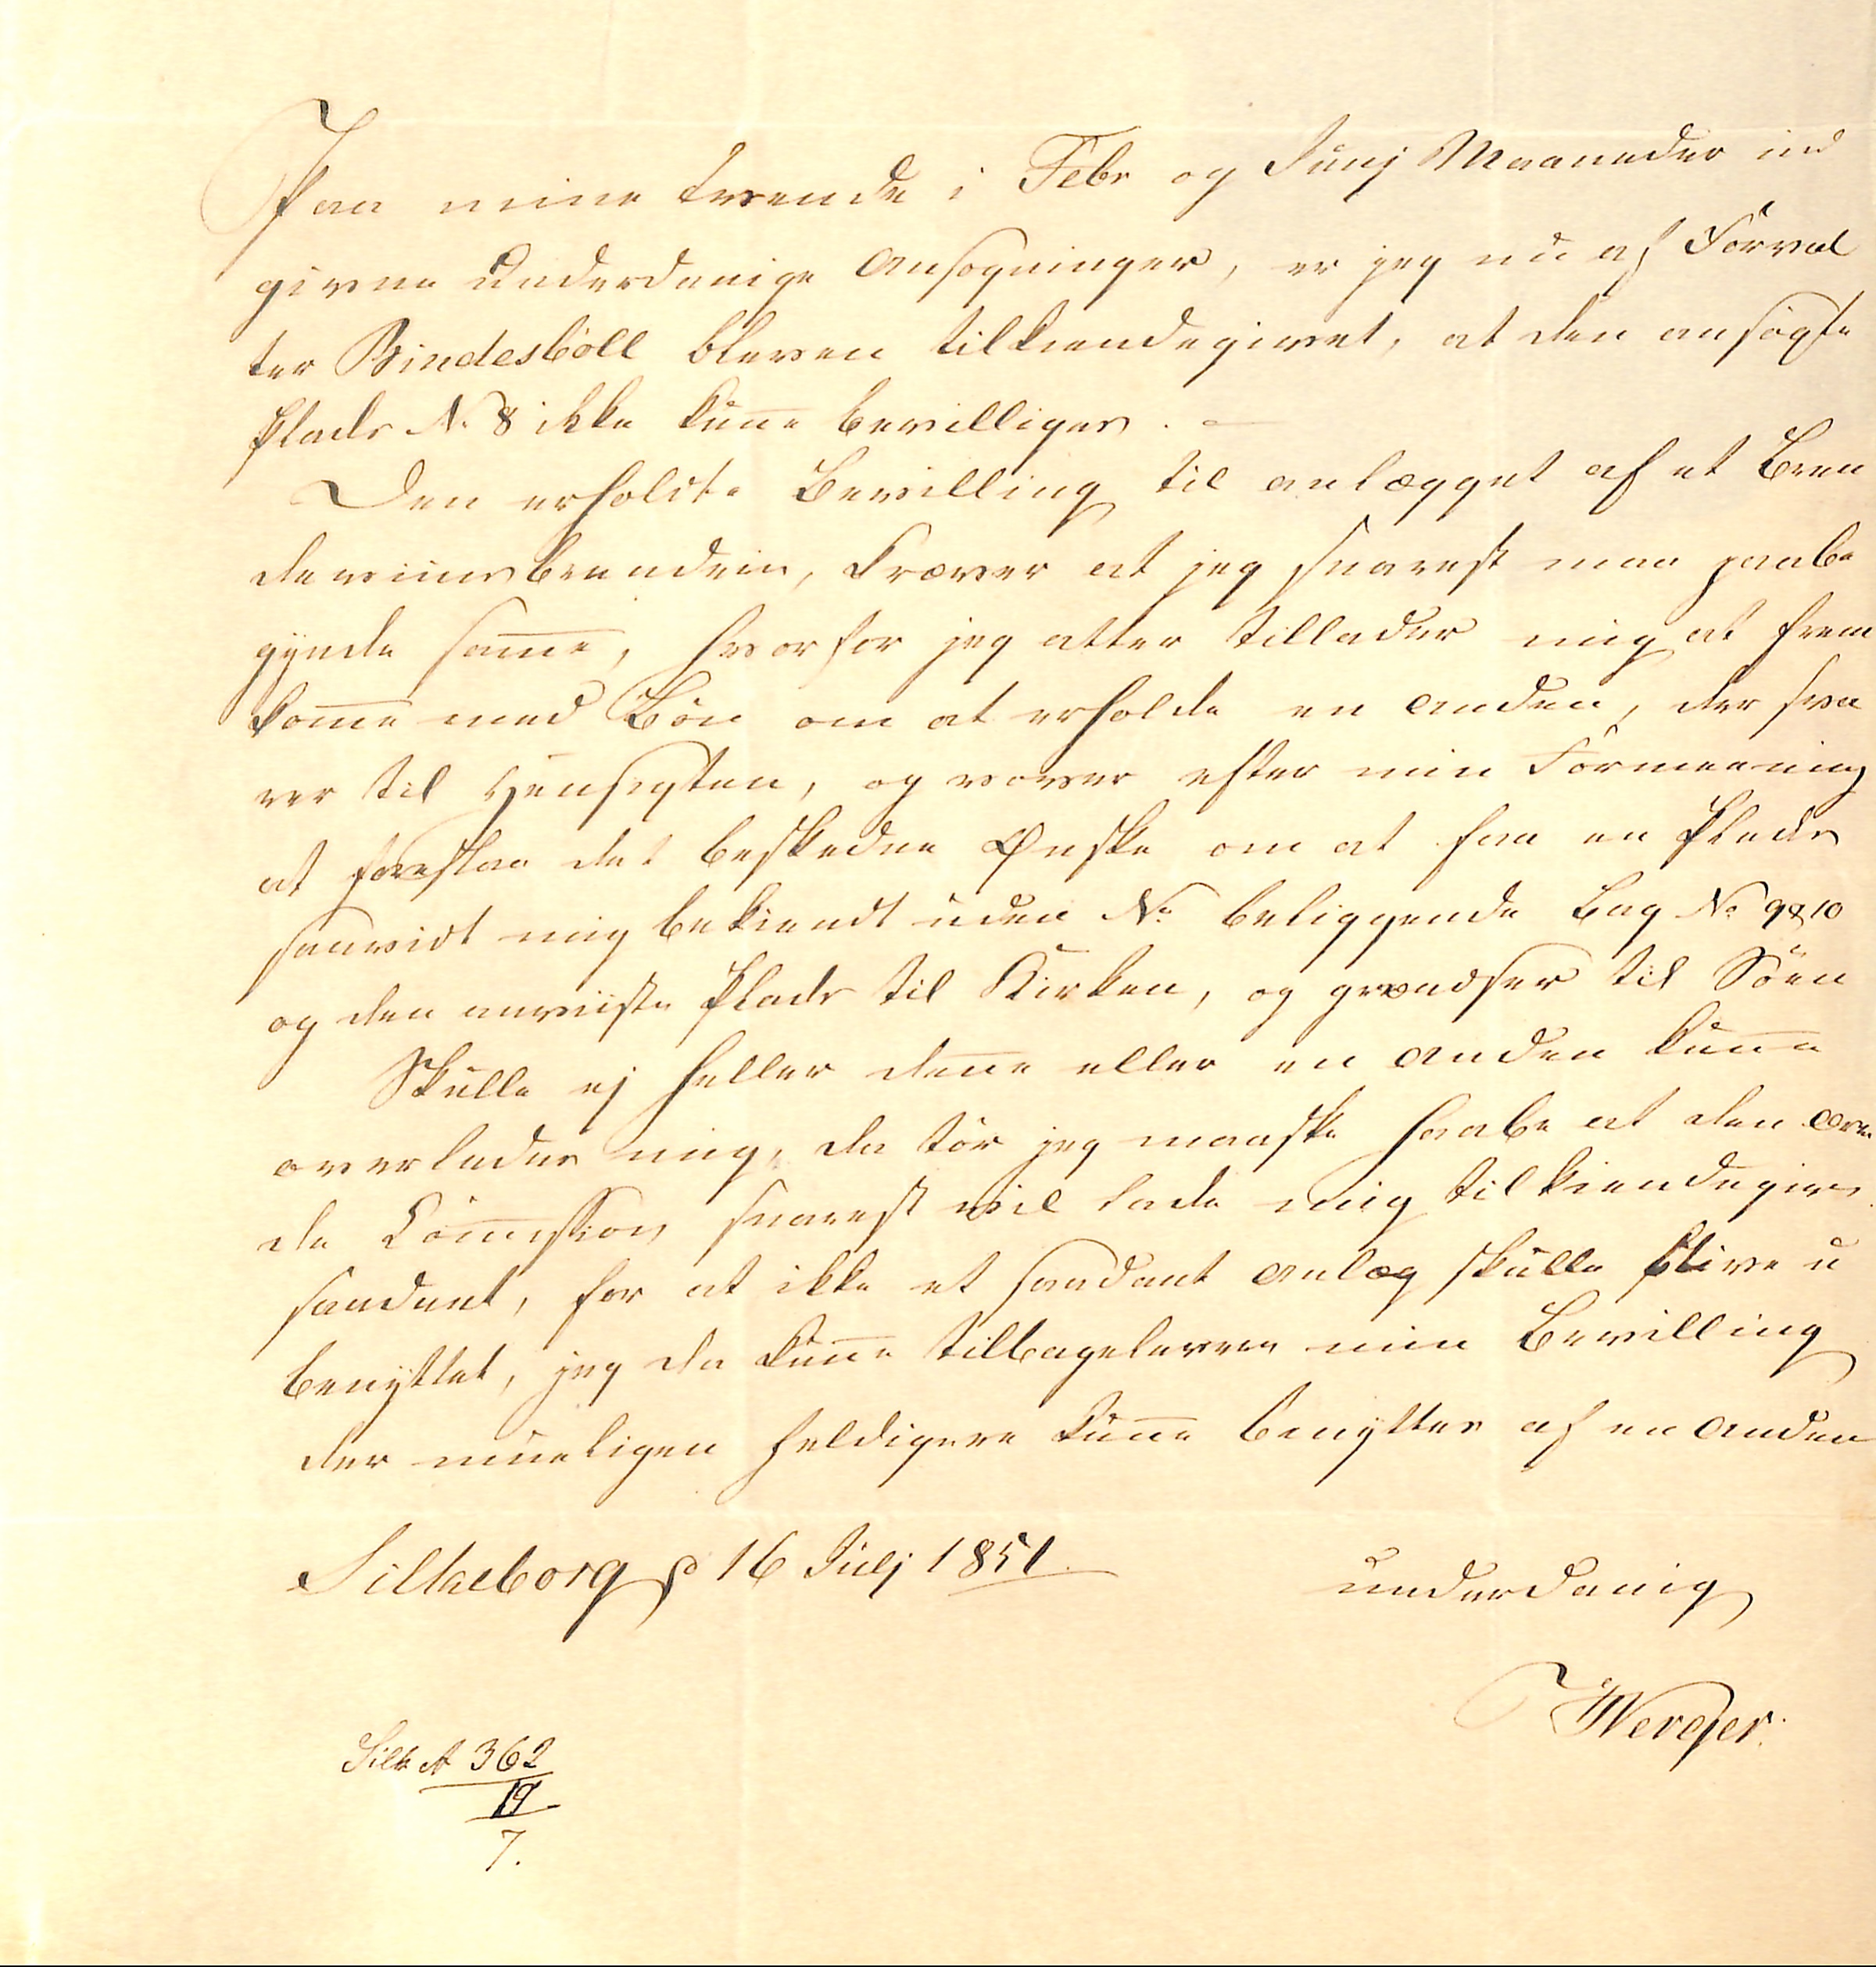 Paa mine tvende i Febr og Junj Maaneder ind
givne underdanige Ansøgninger, er jeg nu af Forval
ter Bindesböll bleven tilkiendegivet, at den ansøgte
Plads No 8 ikke kune bevilliges. –
Den erholdte Bevilling til anlægget af et Bren
deviinsbrænderi, kræver at jeg snarest maa paabe
gynde same, hvorfor jeg atter tillader mig at frem
kome med Bön om at erholde en anden, der sva
rer til Hensigten, og vover efter min Formeening
at foreslaa det beskedne Ønske om at faa en Plads
saavidt mig bekiendt uden No beliggende bag No 9 & 10
og den anviiste Plads til Kirken, og grændser til Söen
Skulle ej heller dene eller en anden kune
overlades mig, da tör jeg maaske haabe at den ære
de Comission snarest vil lade mig tilkiendegive
saadant, for at ikke et saadant Anlæg skulle blive u
benÿttet, jeg da kune tilbagelevere min Bevilling
der mueligen heldigere kune benÿttes af en anden
Silkeborg d 16 Julj 1851.
underdanig
Werger.
Silk A 362
19
7.